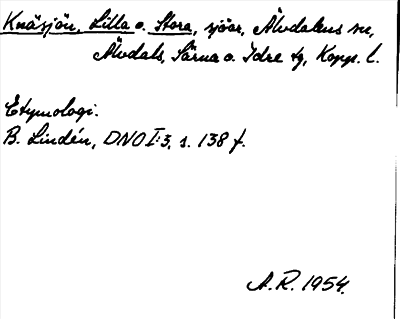 Knäsjön, Lilla o. Stora, sjöar, Älvdalens sn,
Älvdals, Särna o. Idre tg, Kopp. l.
Etymologi.
B. Lindén, DNO I:3, s. 138 f.
A.R. 1954.